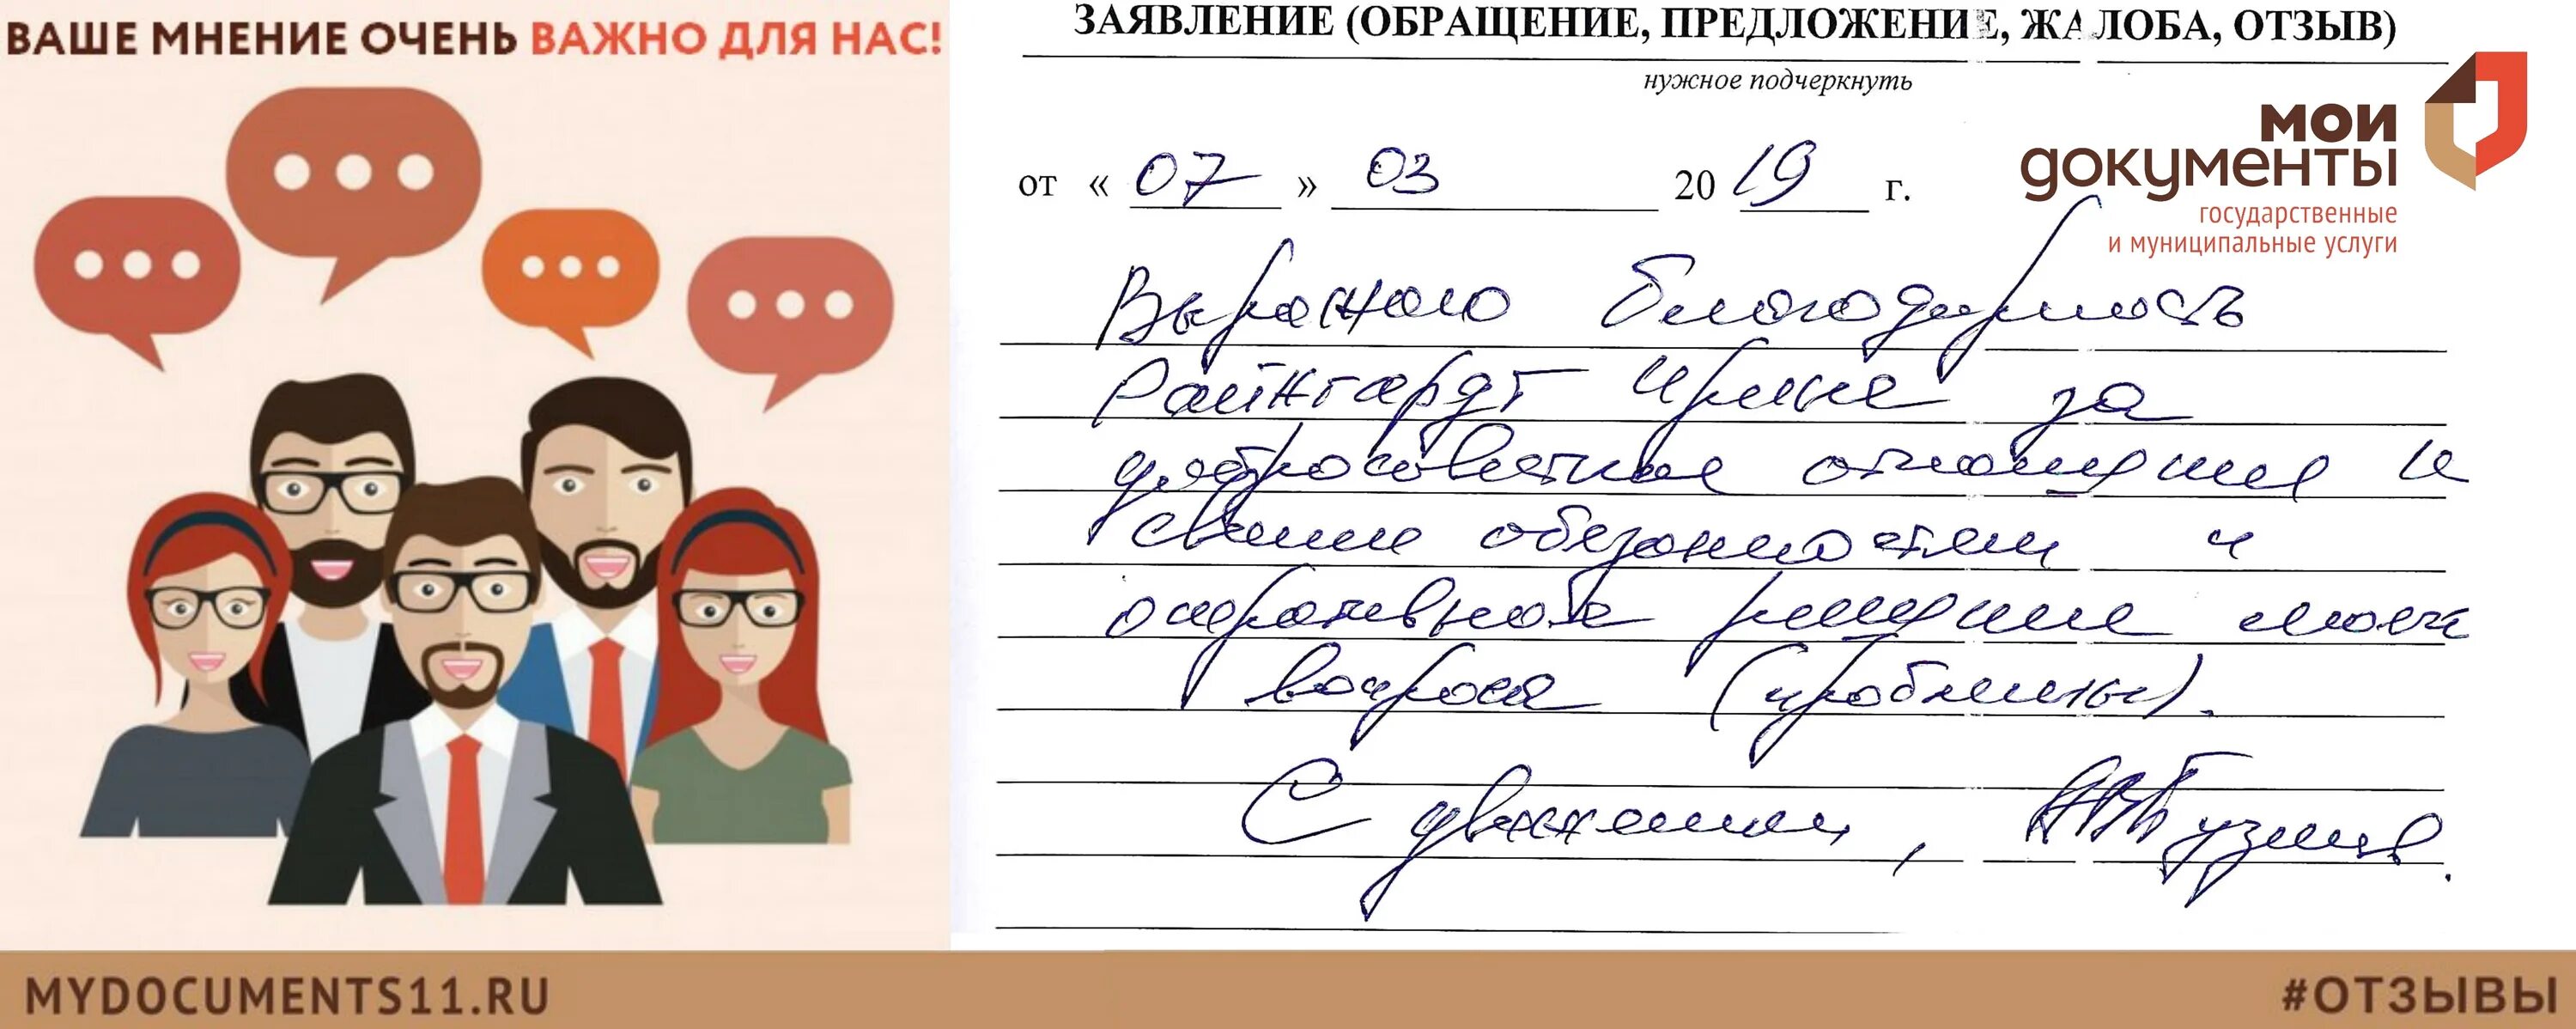 ВАШЕ МНЕНИЕ ОЧЕНЬ ВАЖНО ДЛЯ НАС!
ЗАЯВЛЕНИЕ (ОБРАЩЕНИЕ, ПРЕДЛОЖЕНИЕ, ЖАЛОБА, ОТЗЫВ)
нужное подчеркнуть
мои
документы
государственные
и муниципальные услуги
от « 07 » 03 20 19 г.
Выражаю благодарность
Райнгардт Ирине за
добросовестное отношение к
своим обязанностям и
оперативное решение моего
вопроса (проблемы).
С уважением,
MYDOCUMENTS11.RU
#ОТЗЫВЫ